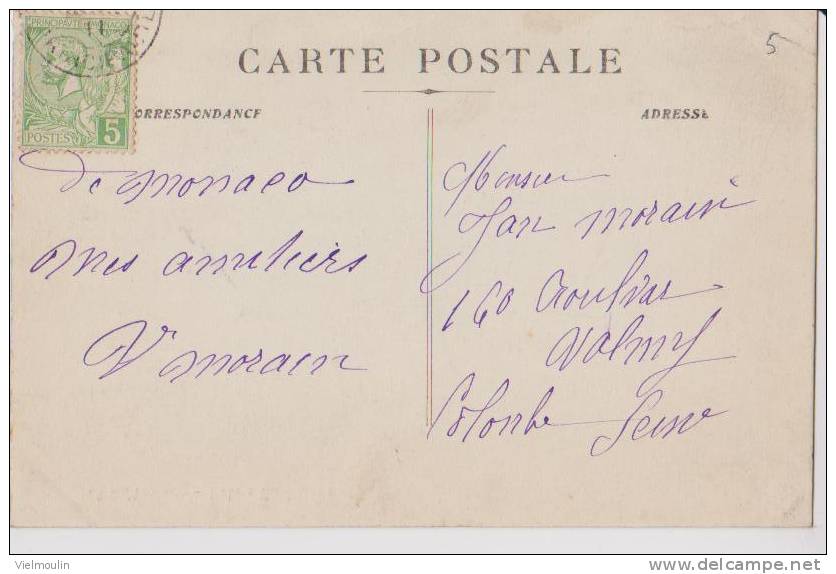 PRINCIPAUTÉ DE MONACO
POSTES 5
5
CARTE POSTALE
CORRESPONDANCE
ADRESSE
De Monaco
mes amitiers
V morain
Monsieur
Jan morain
160 Boulvar
Valmy
Colombe Seine
Vielmoulin
www.delcampe.net